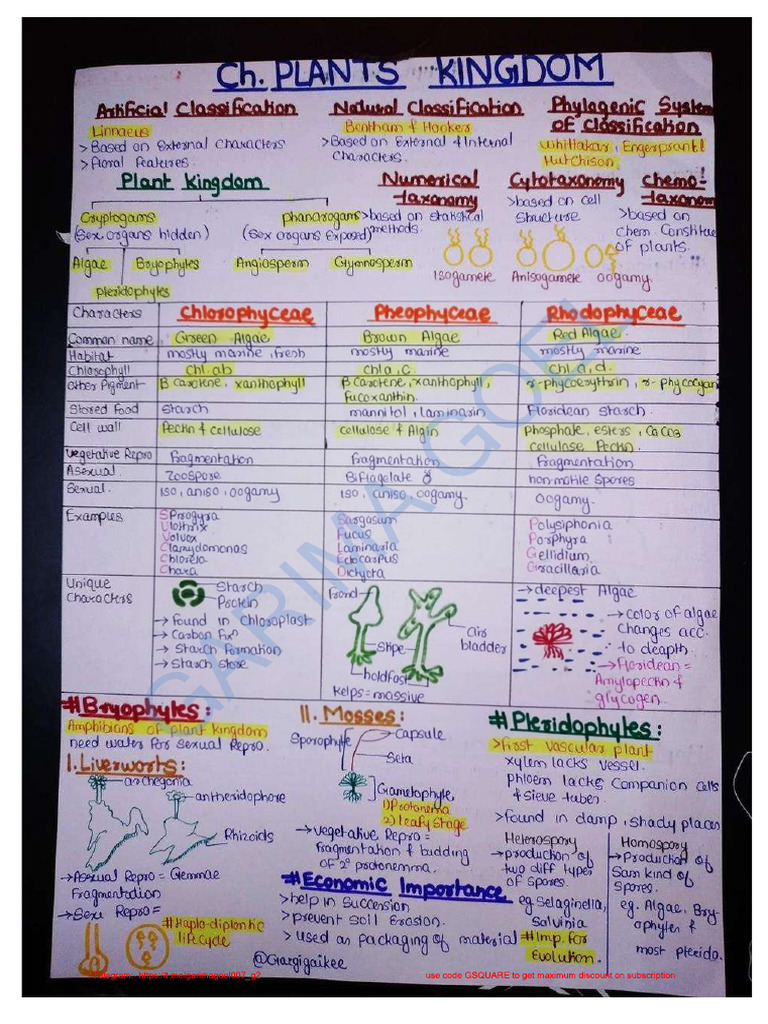 Ch. PLANTS KINGDOM
Artificial Classification
Linnaeus
> Based on External Characters
> floral features.
Natural Classification
Bentham & Hooker
> Based on External & Internal
Characters.
Phylogenic System
of Classification
Whittakar, Engerprantl
Hutchison
Plant Kingdom
Cryptogams
(Sex organs hidden)
phanarogams
(Sex organs Exposed)
Algae
Bryophytes
pteridophytes
Angiosperm
Gymnosperm
Numerical
taxonomy
>based on statistical
methods.
Cytotaxonomy
>based on cell
structure
Chemo-
taxonom
>based on
chem Constitue
of plants.
Isogamete
Anisogamete
oogamy.
Characters
Chlorophyceae
Pheophyceae
Rhodophyceae
Common name
Green Algae
Brown Algae
Red Algae.
Habitat
mostly marine, fresh
mostly marine
mostly marine
Chlorophyll
chl. ab
chl a, c.
chl a, d.
Other Pigment
B carotene, xanthophyll
B carotene, xanthophyll,
fucoxanthin.
r-phycoerythrin, r-phycocyan
Stored Food
Starch
mannitol, laminarin
Floridean starch.
Cell wall
Pectin & cellulose
cellulose & Algin
Phosphate, esters, CaCO3
cellulose Pectin.
Vegetative Repro
fragmentation
fragmentation
fragmentation
Asexual.
Zoospore
Biflagelate
non motile spores
Sexual.
Iso, aniso, oogamy
Iso, aniso, oogamy.
Oogamy.
Examples
Spirogyra
Ulothrix
Volvox
Clamydomonas
Chlorela
Chara
Sargasum
Fucus
Laminaria
Ectocarpus
Dictyota
Polysiphonia
Porphyra
Gellidium
Giracillaria
Unique
Characters
Starch
Protein
→ Found in Chloroplast
→ Carbon Fixn
→ Starch Formation
→ Starch store
Frond
Stipe
air
bladder
holdfast
Kelps = massive
→deepest Algae
→color of algae
Changes acc.
to deapth.
→ Floridean =
Amylopectin &
glycogen.
GARIMA GOEL
#Bryophytes:
Amphibians of plant kingdom
need water for sexual Repro.
I. Liverworts:
archegonia
antheridophore
Rhizoids
→Asexual Repro = Gemmae
Fragmentation
→Sexu Repro =
#Haplo-diplontic
lifecycle
II. Mosses:
Sporophyte
Capsule
Seta
Gametophyte,
1)Protonema
2) leafy stage
→ Vegetative Repro =
fragmentation & budding
of 2° protonemma.
#Economic Importance
>help in Succession
>prevent soil Erosion.
> used as packaging of material
#Imp. for
Evolution.
@Gargigaikee
#Pteridophytes:
>first vascular plant
xylem lacks vessel.
phloem lacks Companion cells
& sieve tubes.
>found in damp, shady places
Heterospory
→production of
two diff types
of spores.
eg. Selaginella,
Salvinia
Homospory
→ Production of
Sam kind of
Spores.
eg. Algae, Bry-
ophytes &
most pterido.
use code GSQUARE to get maximum discount on subscription